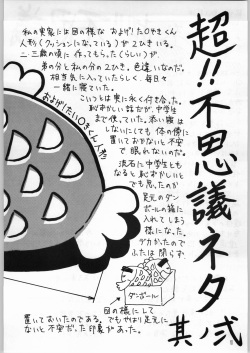 超!!不思議ネタ
其弐
私の実家には図の様な およげ!たいやきくん
人形(クッションになっている)が2ひきいる。
二・三歳の頃に作ってもらった(らしい)が
弟の分と私の分の2ひき。色違いなのだ。
相当気に入っていたらしく、毎日々
一緒に寝ていた。
こいつらは実に永く付き合った。
恥ずかしい話だが、中学生
まで使っていた。添い寝は
しないにしても 体の傍に
置いておかないと不安
で眠れないのだ。
流石に中学生とも
なると恥かしいと
でも思ったのか
足元のダン
ボールの箱に
入れてしまう
様になった。
デカかったので
ふたは閉らず
図の様にして
置いておいたのである。でもやはり足元に
ないと不安だった印象があった。
およげ!たいやきくん人形
ダンボール